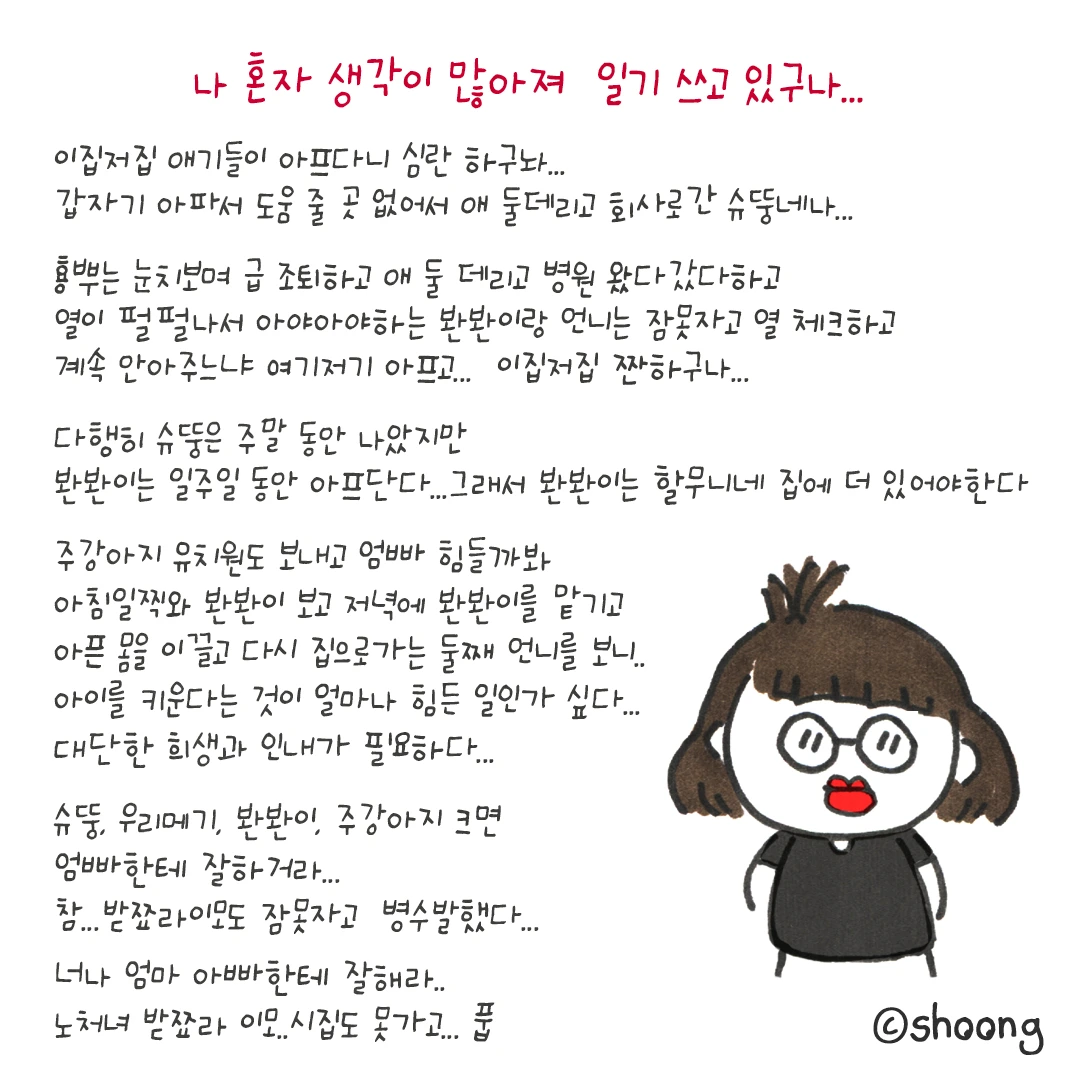 나 혼자 생각이 많아져 일기 쓰고 있구나...
이집저집 애기들이 아프다니 심란 하구놔...
갑자기 아파서 도움 줄 곳 없어서 애 둘데리고 회사로간 슈뚱네나...
횽뿌는 눈치보며 급 조퇴하고 애 둘 데리고 병원 왔다갔다하고
열이 펄펄나서 아야아야하는 봔봔이랑 언니는 잠못자고 열 체크하고
계속 안아주느냐 여기저기 아프고... 이집저집 짠하구나...
다행히 슈뚱은 주말 동안 나았지만
봔봔이는 일주일 동안 아프단다...그래서 봔봔이는 할무니네 집에 더 있어야한다
주강아지 유치원도 보내고 엄빠 힘들까봐
아침일찍와 봔봔이 보고 저녁에 봔봔이를 맡기고
아픈 몸을 이끌고 다시 집으로가는 둘째 언니를 보니..
아이를 키운다는 것이 얼마나 힘든 일인가 싶다...
대단한 희생과 인내가 필요하다...
슈뚱, 우리메기, 봔봔이, 주강아지 크면
엄빠한테 잘하거라...
참...받쬬라이모도 잠못자고 병수발했다...
너나 엄마 아빠한테 잘해라..
노처녀 받쬬라 이모..시집도 못가고... 풉
©shoong